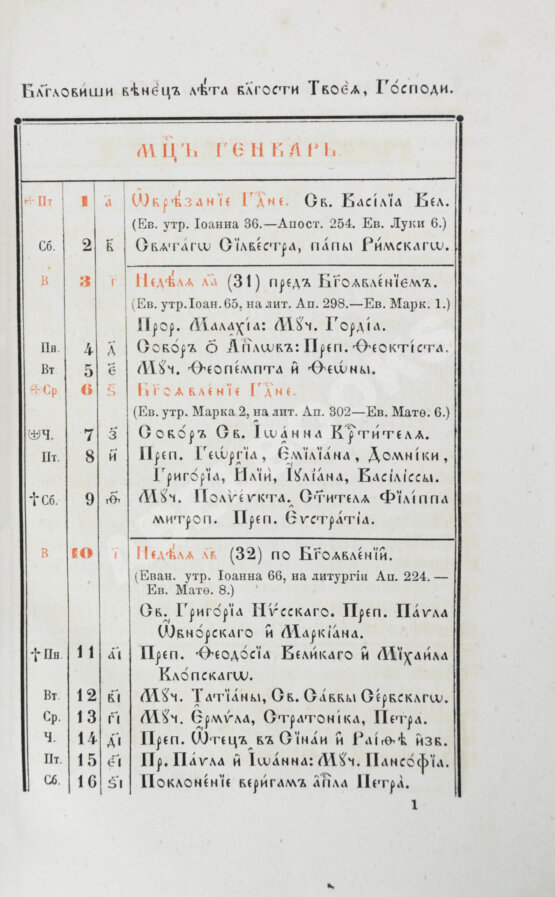 Блгⷭ҇лови́ши вѣне́цъ лѣ́та бл҃гости Твоеѧ̀, Го́споди.
МЦ҃Ъ ГЕНВАРЬ.
Пт 1 а҃ Ѡбрѣ́занїе Гдⷭ҇не. Св. Васі́лїа Вел.
(Ев. утр. Іоанна 36.—Апост. 254. Ев. Луки 6.)
Сб. 2 в҃ Свѧта́гѡ Сїлве́стра, па́пы Ри́мскагѡ.
В 3 г҃ Недѣ́лѧ ла҃ (31) предъ Бг҃оѧвле́нїемъ.
(Ев. утр. Іоан. 65, на лит. Ап. 298.—Ев. Марк. 1.)
Прор. Малахі́а: Мꙋч. Горді́а.
Пн. 4 д҃ Собо́ръ ѻ҃ Ап҃лѡвъ: Преп. Ѳеокті́ста.
Вт 5 е҃ Мꙋч. Ѳеопе́мпта и҆ Ѳеѡ́ны.
Ср 6 ѕ҃ Бг҃оѧвле́нїе Гдⷭ҇не.
(Ев. утр. Марка 2, на лит. Ап. 302—Ев. Матѳ. 6.)
Ч. 7 з҃ Собо́ръ Св. Іѡа́нна Крⷭ҇ти́телѧ.
Пт. 8 и҃ Преп. Геѡ́ргїа, Є҆мїлїа́на, Домні́ки,
Григо́рїа, Илїи́, Іꙋлїа́на, Васілі́ссы.
Сб. 9 ѳ҃ Мꙋч. Полѵе́ѵкта. Ст҃и́телѧ Фїлі́ппа
митроп. Преп. Єѵстра́тїа.
В 10 і҃ Недѣ́лѧ лв҃ (32) по Бг҃оѧвле́нїи.
(Еван. утр. Іоанна 66, на литургіи Ап. 224.—
Ев. Матѳ. 8.)
Св. Григо́рїа Нѵ́сскаго. Преп. Па́ѵла
Ѡ҆бно́рскаго и҆ Маркїа́на.
Пн. 11 а҃і Преп. Ѳеодо́сїа Вели́каго и҆ Мїхаи́ла
Кло́пскагѡ.
Вт. 12 в҃і Мꙋч. Татїа́ны, Св. Са́ввы Се́рбскагѡ.
Ср. 13 г҃і Мꙋч. Є҆рмѵ́ла, Стратоні́ка, Петра.
Ч. 14 д҃і Преп. Ѻ҆те́цъ въ Сїна́и и҆ Раїѳѣ̀ и҆зб.
Пт. 15 е҃і Пр. Па́ѵла и҆ Іѡа́нна: Мꙋч. Пансо́фїа.
Сб. 16 ѕ҃і Поклоне́нїе вери́гамъ а҆пⷭ҇ла Петра̀.
1